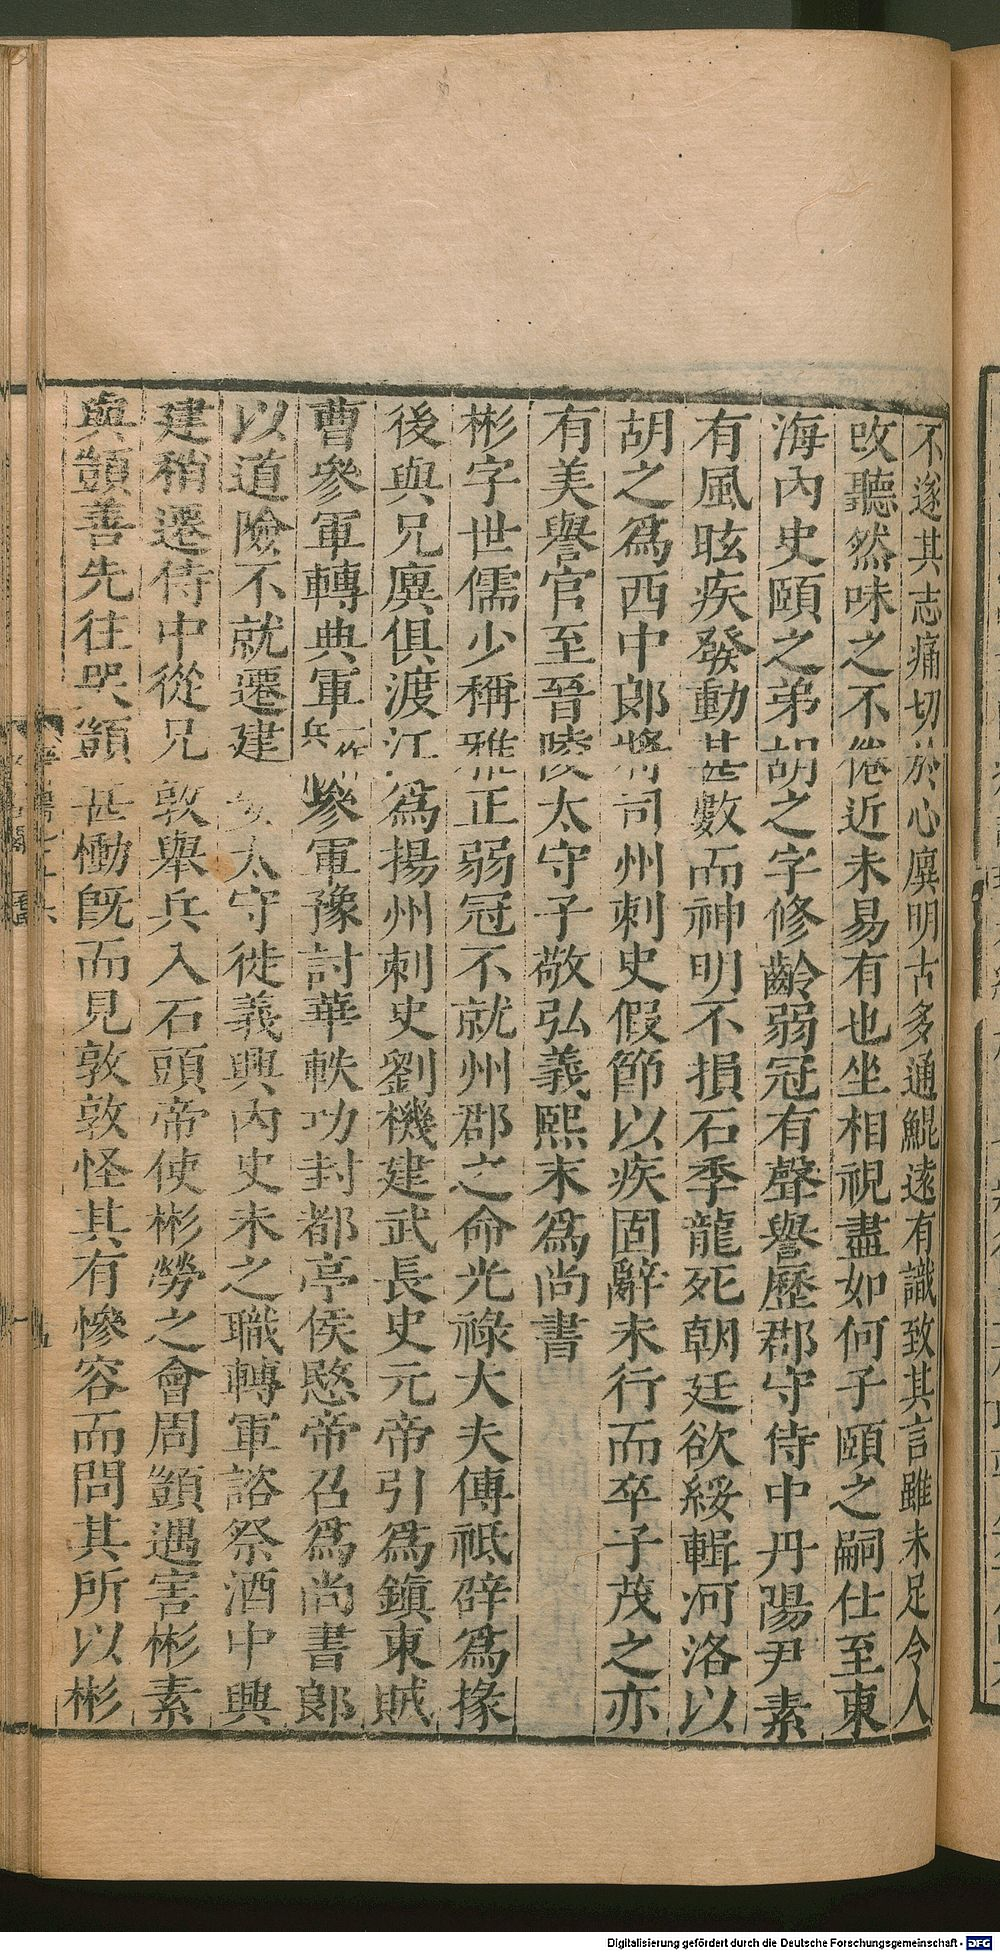 不遂其志痛切於心廙明古多通鯤遠有識致其言雖未足令人
改聽然味之不倦近未易有也坐相視盡如何子頤之嗣仕至東
海內史頤之弟胡之字修齡弱冠有聲譽歷郡守侍中丹陽尹素
有風眩疾發動甚數而神明不損石季龍死朝廷欲綏輯河洛以
胡之爲西中郎將司州刺史假節以疾固辭未行而卒子茂之亦
有美譽官至晉陵太守子敬弘義熙末爲尚書
彬字世儒少稱雅正弱冠不就州郡之命光祿大夫傅祗辟爲掾
後與兄廙俱渡江爲揚州刺史劉機建武長史元帝引爲鎮東賊
曹參軍轉典軍一作兵參軍豫討華軼功封都亭侯愍帝召爲尚書郎
以道險不就遷建安太守徙義興內史未之職轉軍諮祭酒中興
建稍遷侍中從兄敦舉兵入石頭帝使彬勞之會周顗遇害彬素
與顗善先往哭顗甚慟旣而見敦敦怪其有慘容而問其所以彬
Digitalisierung gefördert durch die Deutsche Forschungsgemeinschaft - DFG